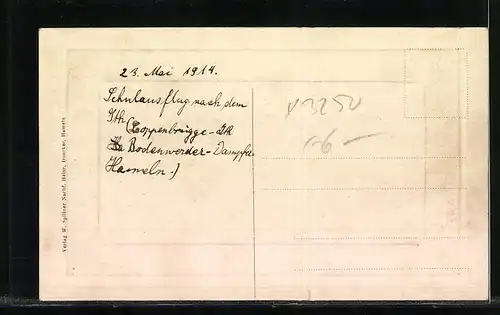 23. Mai 1914.
Schulausflug nach dem
Ith
(Coppenbrügge - Ith
Bodenwerder - Dampfer
Hameln.)
3250
6 -
Verlag W. Spilkner Nachf. Heinr. Drawker, Hameln